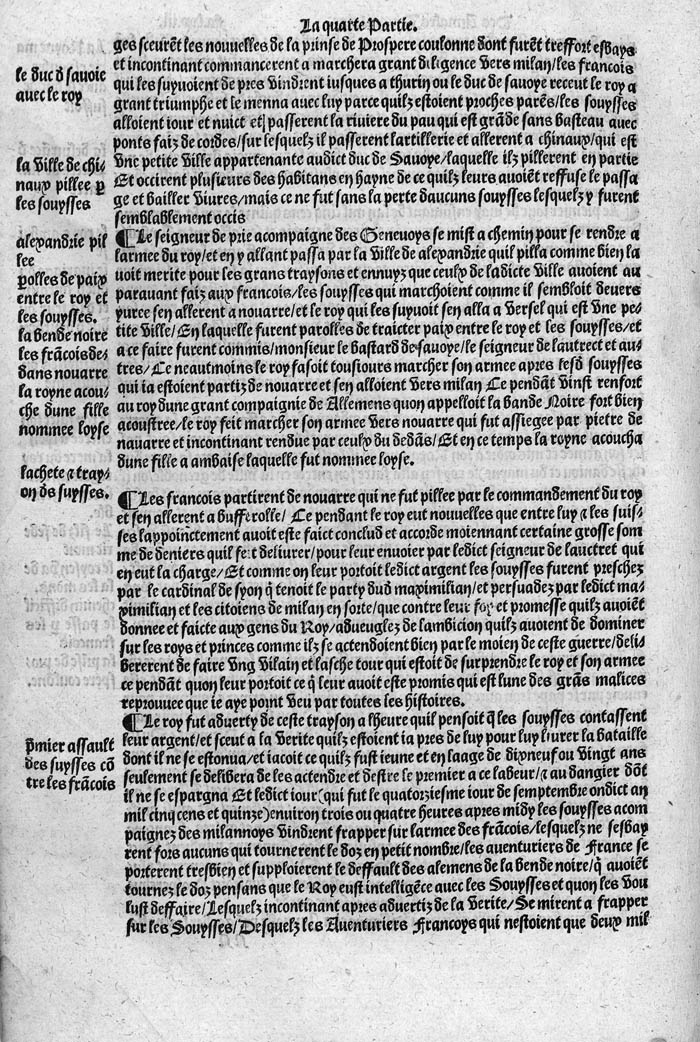 La quarte Partie.
ges sceurẽt les nouuelles de la prinse de Prospere coulonne dont furẽt treffort esbays
et incontinant commancerent a marcher a grant diligence vers milan/les francois
le duc d sauoie
qui les suyuoient de pres vindrent iusques a thurin ou le duc de sauoye receut le roy a
auec le roy
grant triumphe et le menna auec luy parce quilz estoient proches parẽs/les souysses
alloient iour et nuict et passerent la riuiere du pau qui est grãde sans basteau auec
ponts faiz de cordes/sur lesquelz il passerent lartillerie et allerent a chinaux/qui est
la ville de chi-
vne petite ville appartenante audict duc de Sauoye/laquelle ilz pillerent en partie
naux pillee p
Et occirent plusieurs des habitans en hayne de ce quilz leurs auoiẽt reffuse le passa
les souysses
ge et bailler viures/mais ce ne fut sans la perte daucuns souysses lesquelz y furent
semblablement occis
alexandrie pil
¶Le seigneur de prie acompaigne des Geneuoys se mist a chemin pour se rendre a
lee
larmee du roy/et en y allant passa par la ville de alexandrie quil pilla comme bien la
polles de paix
uoit merite pour les grans traysons et ennuyz que ceulx de ladicte ville auoient au
entre le roy et
parauant faiz aux francois/les souysses qui marchoient comme il sembloit deuers
les souysses.
yuree sen allerent a nouarre/et le roy qui les suyuoit sen alla a Versel qui est vne pe-
la bende noire
tite ville/En laquelle furent parolles de traicter paix entre le roy et les souysses/et
les frãcois de-
a ce faire furent commis/monsieur le bastard de sauoye/le seigneur de lautrect et au-
dans nouarre
tres/Ce neautmoins le roy fasoit tousiours marcher son armee apres lesd souysses
la royne acou-
qui ia estoient partiz de nouarre et sen alloient vers milan Ce pendãt vinst renfort
che dune fille
au roy dune grant compaignie de Allemens quon appelloit la bande Noire fort bien
nommee loyse
acoustree/le roy feit marcher son armee vers nouarre qui fut assiegee par pietre de
nauarre et incontinant rendue par ceulx du dedãs/Et en ce temps la royne acoucha
dune fille a ambaise laquelle fut nommee loyse.
lachete & tray-
on ds suysses.
¶Les francois partirent de nouarre qui ne fut pillee par le commandement du roy
et sen allerent a bufferolle/ Ce pendant le roy eut nouuelles que entre luy & les suis-
ses lappoinctement auoit este faict conclud et accorde moiennant certaine grosse som
me de deniers quil feit deliurer/pour leur enuoier par ledict seigneur de lauctret qui
en eut la charge/Et comme on leur portoit ledict argent les souysses furent preschez
par le cardinal de syon q̃ tenoit le party dud maximilian/et persuadez par ledict ma-
ximilian et les citoiens de milan en sorte/que contre leur foy et promesse quilz auoiẽt
donnee et faicte aux gens du Roy/adueuglez de lambicion quilz auoient de dominer
sur les roys et princes comme ilz se actendoient bien par le moien de ceste guerre/deli-
bererent de faire vng vilain et lasche tour qui estoit de surprendre le roy et son armee
ce pendãt quon leur portoit ce q̃ leur auoit este promis qui est lune des grãs malices
reprouuee que ie aye point veu par toutes les histoires.
¶Le roy fut aduerty de ceste trayson a lheure quil pensoit q̃ les souysses contassent
p̃mier assault
leur argent/et sceut a la verite quilz estoient ia pres de luy pour luy liurer la bataille
des suysses cõ
dont il ne se estonua/et iacoit ce quilz fust ieune et en laage de dixneuf ou vingt ans
tre les frãcois
seulement se delibera de les actendre et destre le premier a ce labeur/& au dangier dõt
il ne se espargna Et ledict iour(qui fut le quatorziesme iour de septembre ondict an
mil cinq cens et quinze)enuiron trois ou quatre heures apres midy les souysses acom
paignez des milannoys vindrent frapper sur larmee des frãcois/lesquelz ne sesbay
rent fors aucuns qui tournerent le doz en petit nombre/les auenturiers de France se
porterent tresbien et supploierent le deffault des alemens de la bende noire/q̃ auoiẽt
tournez le doz pensans que le Roy eust intelligẽce auec les Souysses et quon les vou
lust deffaire/Lesquelz incontinant apres aduertiz de la verite/Se mirent a frapper
sur les Souysses/Desquelz les Auenturiers Francoys qui nestoient que deux mil